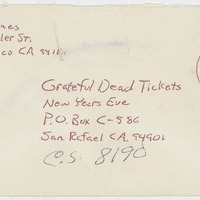 nes
ler St.
co CA 941
Grateful Dead Tickets
New Years Eve
P.O. Box C-S 8G
San Rafael CA. 94901
C.S. 8190